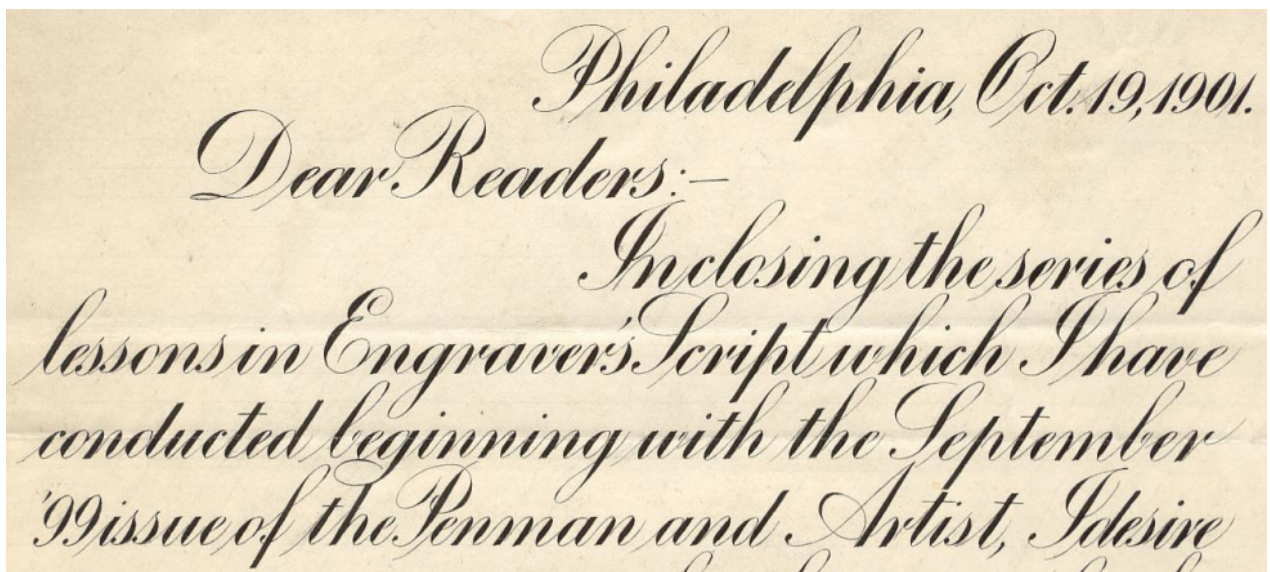 Philadelphia, Oct. 19, 1901.
Dear Readers:—
In closing the series of
lessons in Engraver's Script which I have
conducted beginning with the September
'99 issue of the Penman and Artist, I desire